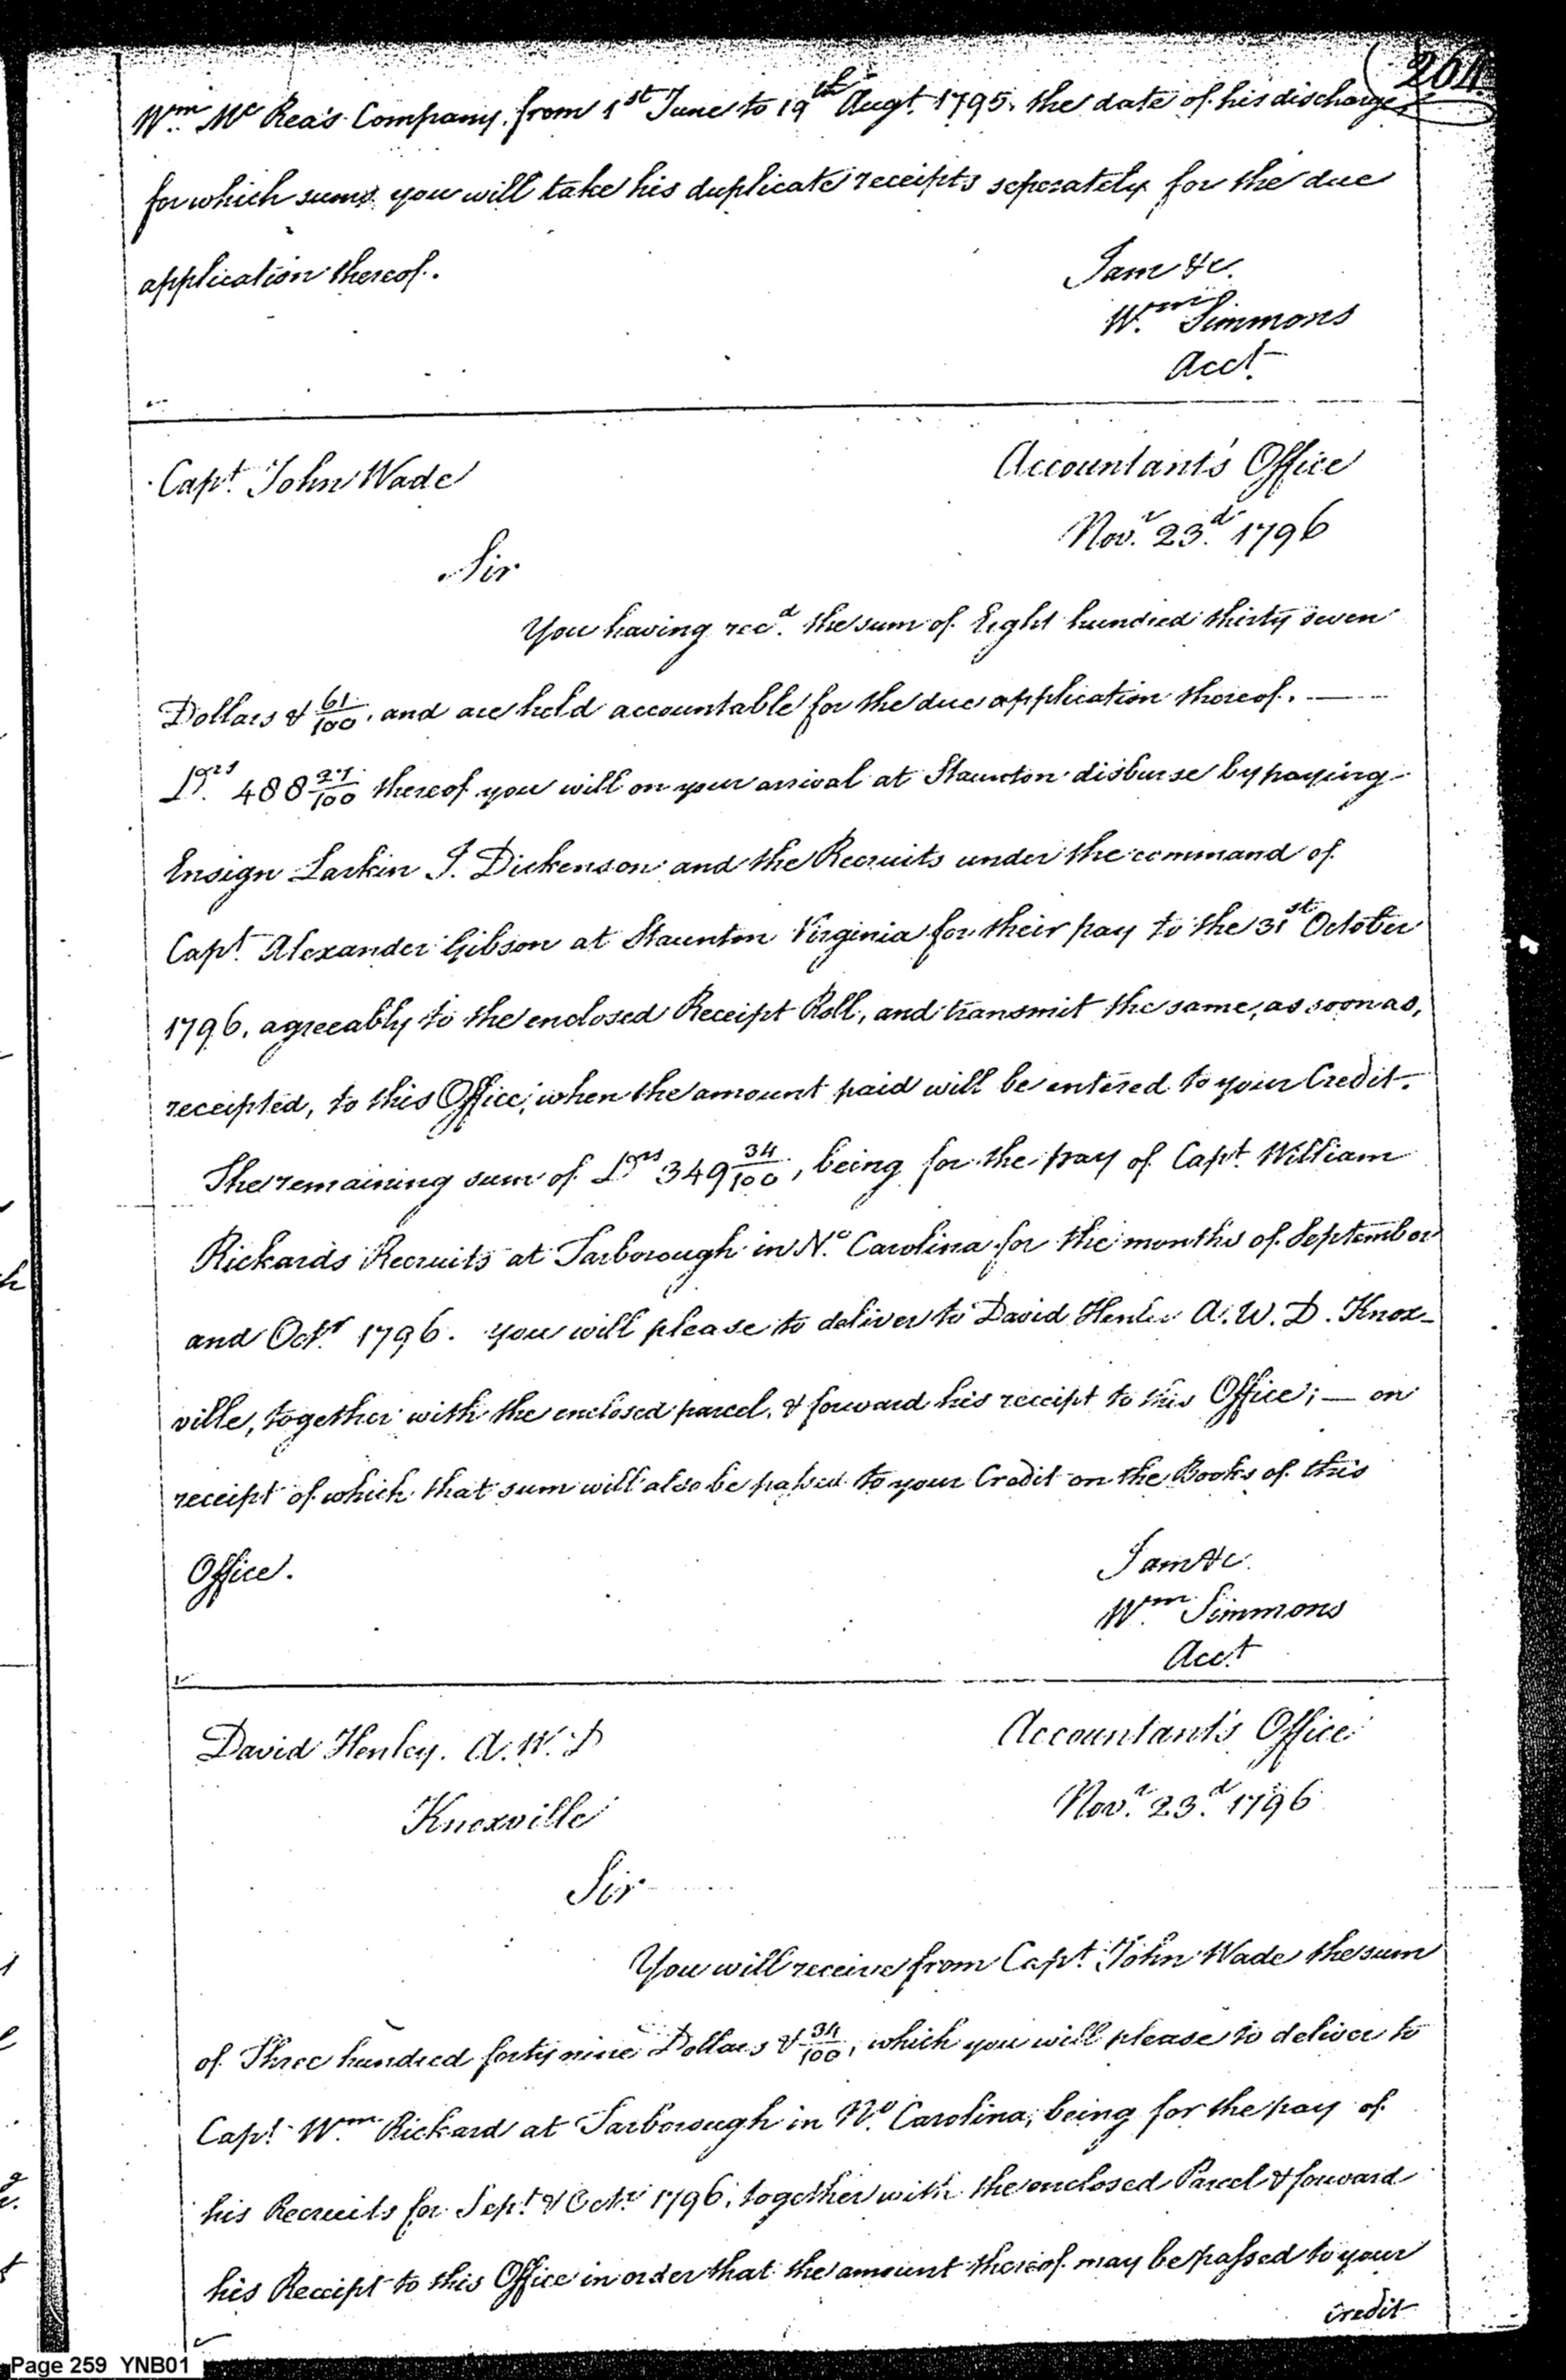 264
Wm. Mc Rea's Company, from 1st June to 19th Augt. 1795, the date of his discharge,
for which sums you will take his duplicate receipts seperately for the due
application thereof.
I am &c.
Wm. Simmons
Acct.
Capt. John Wade
Accountant's Office
Novr. 23d. 1796
Sir
You having recd. the sum of Eight hundred thirty seven
Dollars & 61/100, and are held accountable for the due application thereof. —
Drs. 488 27/100 thereof you will on your arrival at Staunton disburse by paying
Ensign Larkin I. Dickenson and the Recruits under the command of
Capt. Alexander Gibson at Staunton Virginia for their pay to the 31st October
1796, agreeably to the enclosed Receipt Roll, and transmit the same, as soon as,
receipted, to this Office, when the amount paid will be entered to your Credit.
The remaining sum of Drs 349 34/100, being for the pay of Capt. William
Rickards Recruits at Tarborough in No. Carolina for the months of September
and Octr. 1796. you will please to deliver to David Henley A. W. D. Knox-
ville, together with the enclosed parcel, & forward his receipt to this Office; — on
receipt of which that sum will also be passed to your Credit on the Books of this
Office.
I am &c.
Wm. Simmons
Acct.
David Henley. A. W. D
Accountant's Office
Knoxville
Novr. 23d. 1796
Sir
You will receive from Capt. John Wade the sum
of Three hundred forty nine Dollars & 34/100, which you will please to deliver to
Capt. Wm. Rickard at Tarborough in No. Carolina, being for the pay of
his Recruits for Sept. & Octr. 1796, together with the enclosed Parcel & forward
his Receipt to this Office in order that the amount thereof may be passed to your
Credit
Page 259 YNB01